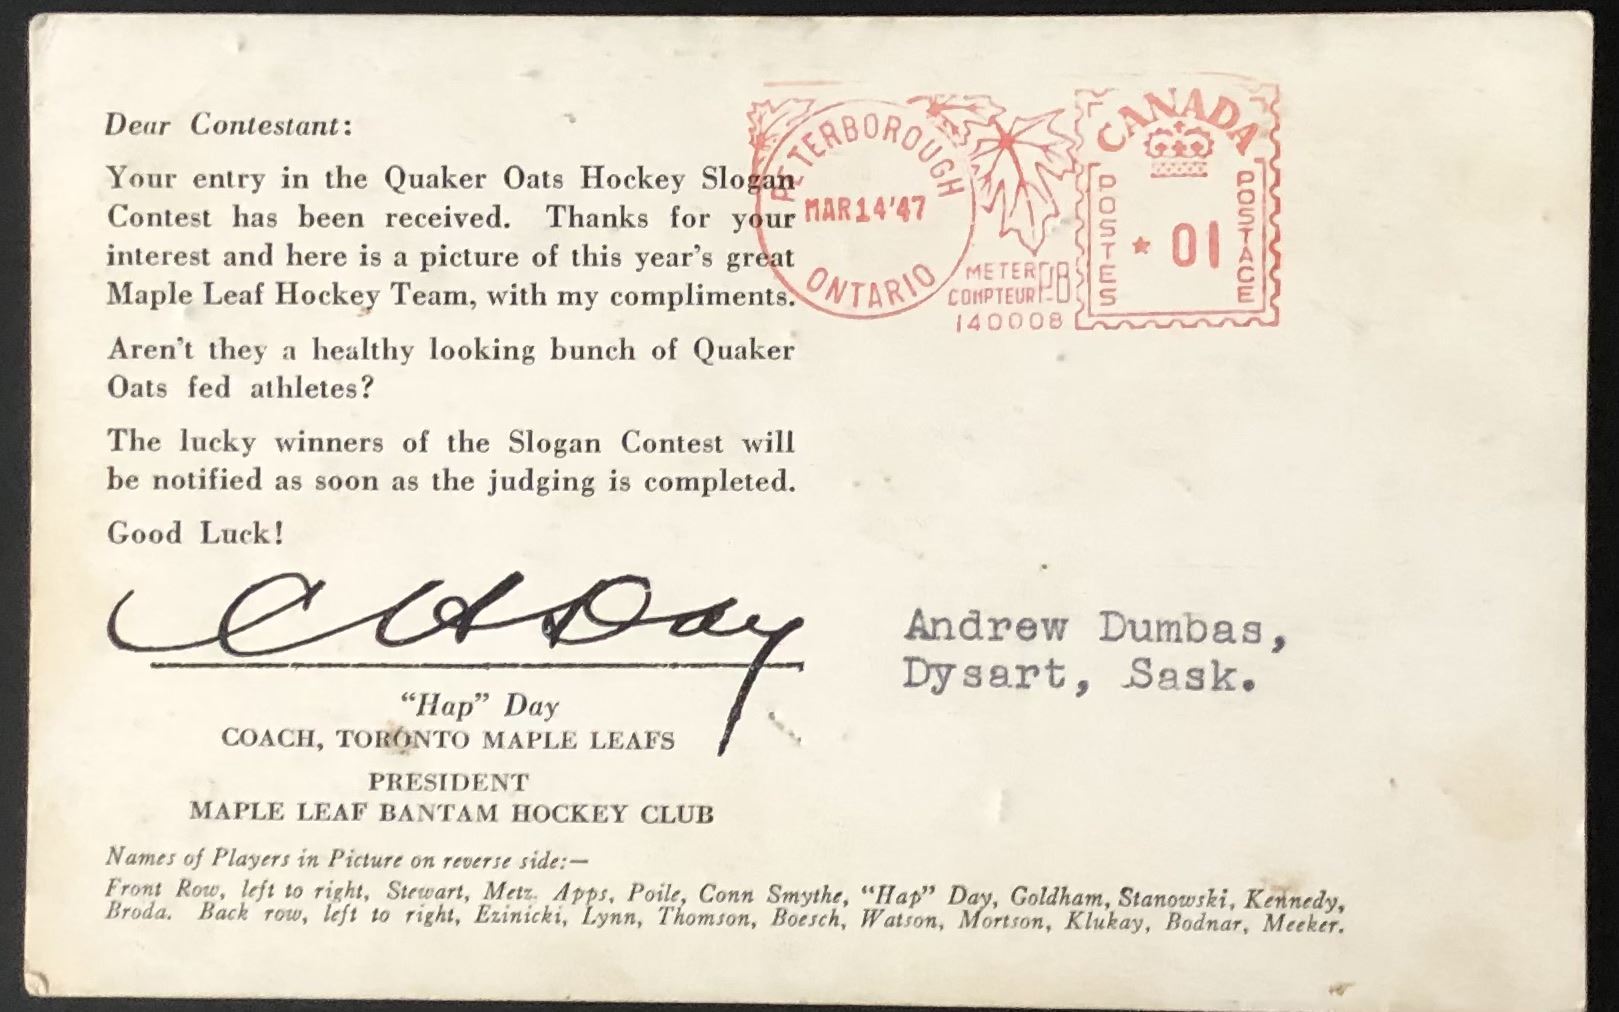 Dear Contestant:
Your entry in the Quaker Oats Hockey Slogan
Contest has been received. Thanks for your
interest and here is a picture of this year's great
Maple Leaf Hockey Team, with my compliments.
Aren't they a healthy looking bunch of Quaker
Oats fed athletes?
The lucky winners of the Slogan Contest will
be notified as soon as the judging is completed.
Good Luck!
C H Day
"Hap" Day
COACH, TORONTO MAPLE LEAFS
PRESIDENT
MAPLE LEAF BANTAM HOCKEY CLUB
Names of Players in Picture on reverse side:—
Front Row, left to right, Stewart, Metz, Apps, Poile, Conn Smythe, "Hap" Day, Goldham, Stanowski, Kennedy,
Broda. Back row, left to right, Ezinicki, Lynn, Thomson, Boesch, Watson, Mortson, Klukay, Bodnar, Meeker.
PETERBOROUGH
MAR 14 '47
ONTARIO
METER PB
COMPTEUR
140008
CANADA
POSTES
* 01
POSTAGE
Andrew Dumbas,
Dysart, Sask.